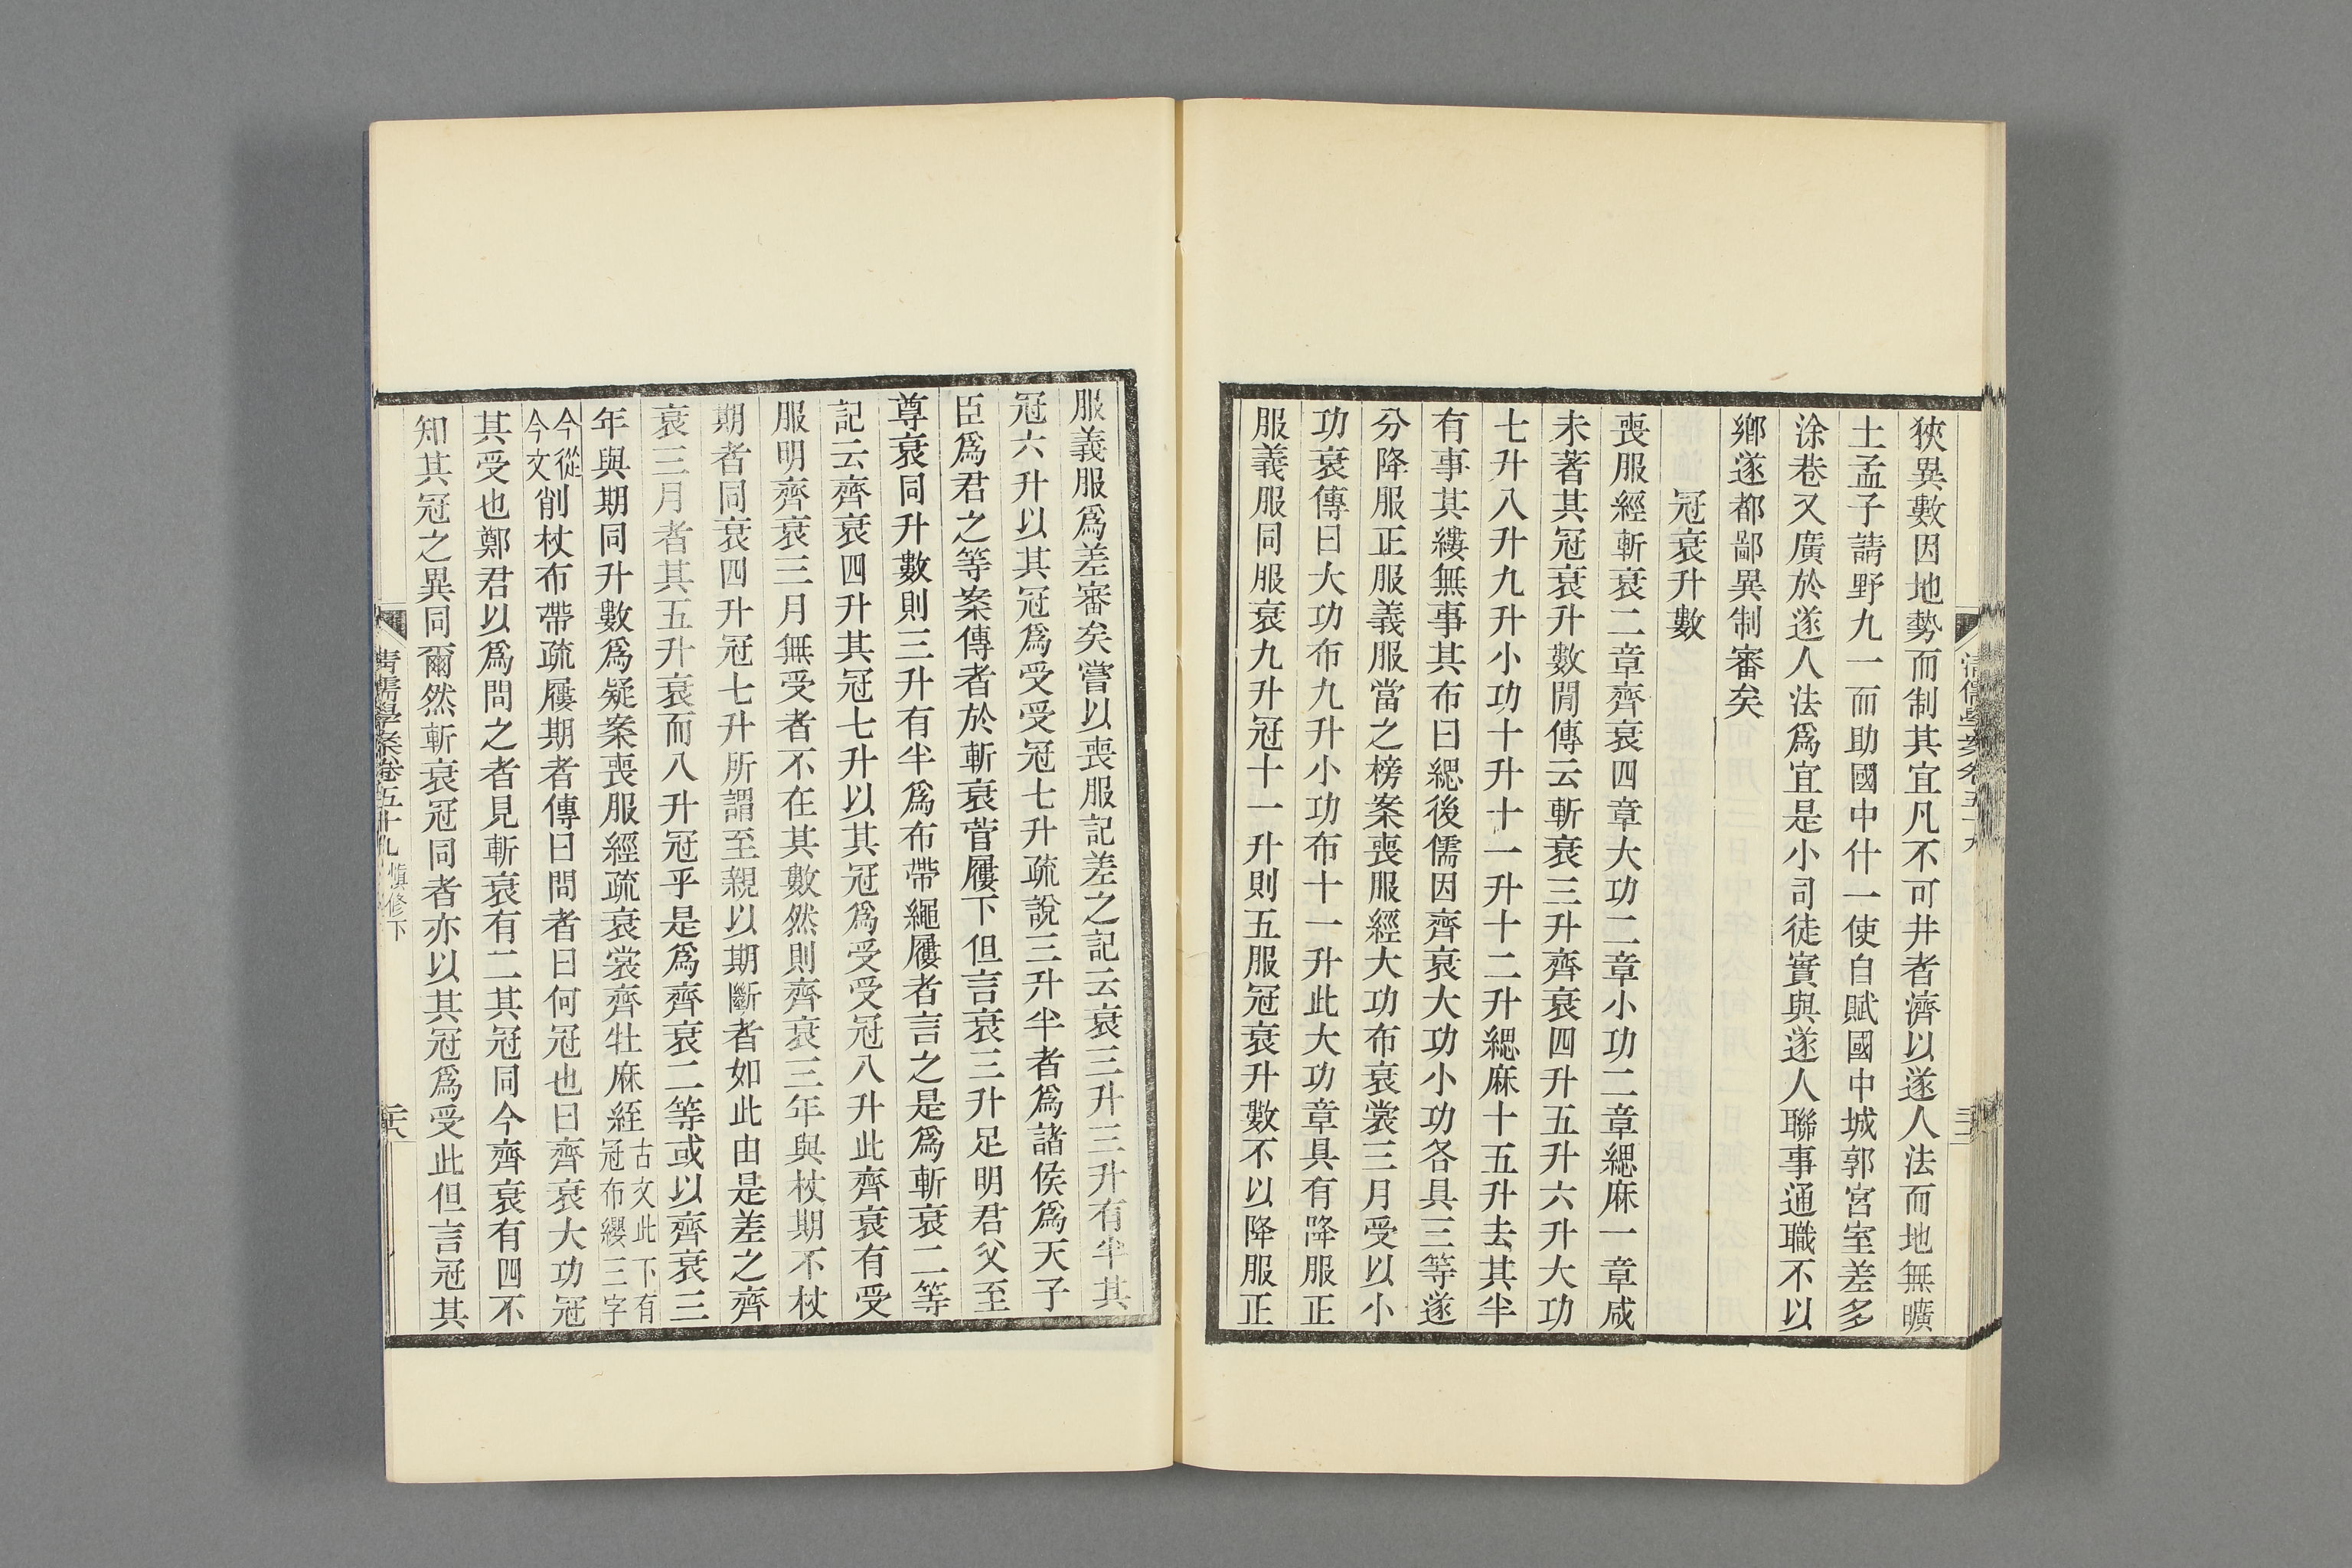 狹異數因地勢而制其宜凡不可井者濟以遂人法而地無曠
土孟子請野九一而助國中什一使自賦國中城郭宮室差多
涂巷又廣於遂人法爲宜是小司徒實與遂人聯事通職不以
鄉遂都鄙異制審矣
冠衰升數
喪服經斬衰二章齊衰四章大功二章小功二章緦麻一章咸
未著其冠衰升數閒傳云斬衰三升齊衰四升五升六升大功
七升八升九升小功十升十一升十二升緦麻十五升去其半
有事其縷無事其布曰緦後儒因齊衰大功小功各具三等遂
分降服正服義服當之榜案喪服經大功布衰裳三月受以小
功衰傳曰大功布九升小功布十一升此大功章具有降服正
服義服同服衰九升冠十一升則五服冠衰升數不以降服正
服義服爲差審矣嘗以喪服記差之記云衰三升三升有半其
冠六升以其冠爲受受冠七升疏說三升半者爲諸侯爲天子
臣爲君之等案傳者於斬衰菅屨下但言衰三升足明君父至
尊衰同升數則三升有半爲布帶繩屨者言之是爲斬衰二等
記云齊衰四升其冠七升以其冠爲受受冠八升此齊衰有受
服明齊衰三月無受者不在其數然則齊衰三年與杖期不杖
期者同衰四升冠七升所謂至親以期斷者如此由是差之齊
衰三月者其五升衰而八升冠乎是爲齊衰二等或以齊衰三
年與期同升數爲疑案喪服經疏衰裳齊牡麻絰古文此下有冠布纓三字
今從今文削杖布帶疏屨期者傳曰問者曰何冠也曰齊衰大功冠
其受也鄭君以爲問之者見斬衰有二其冠同今齊衰有四不
知其冠之異同爾然斬衰冠同者亦以其冠爲受此但言冠其
清儒學案卷五十九 慎修下